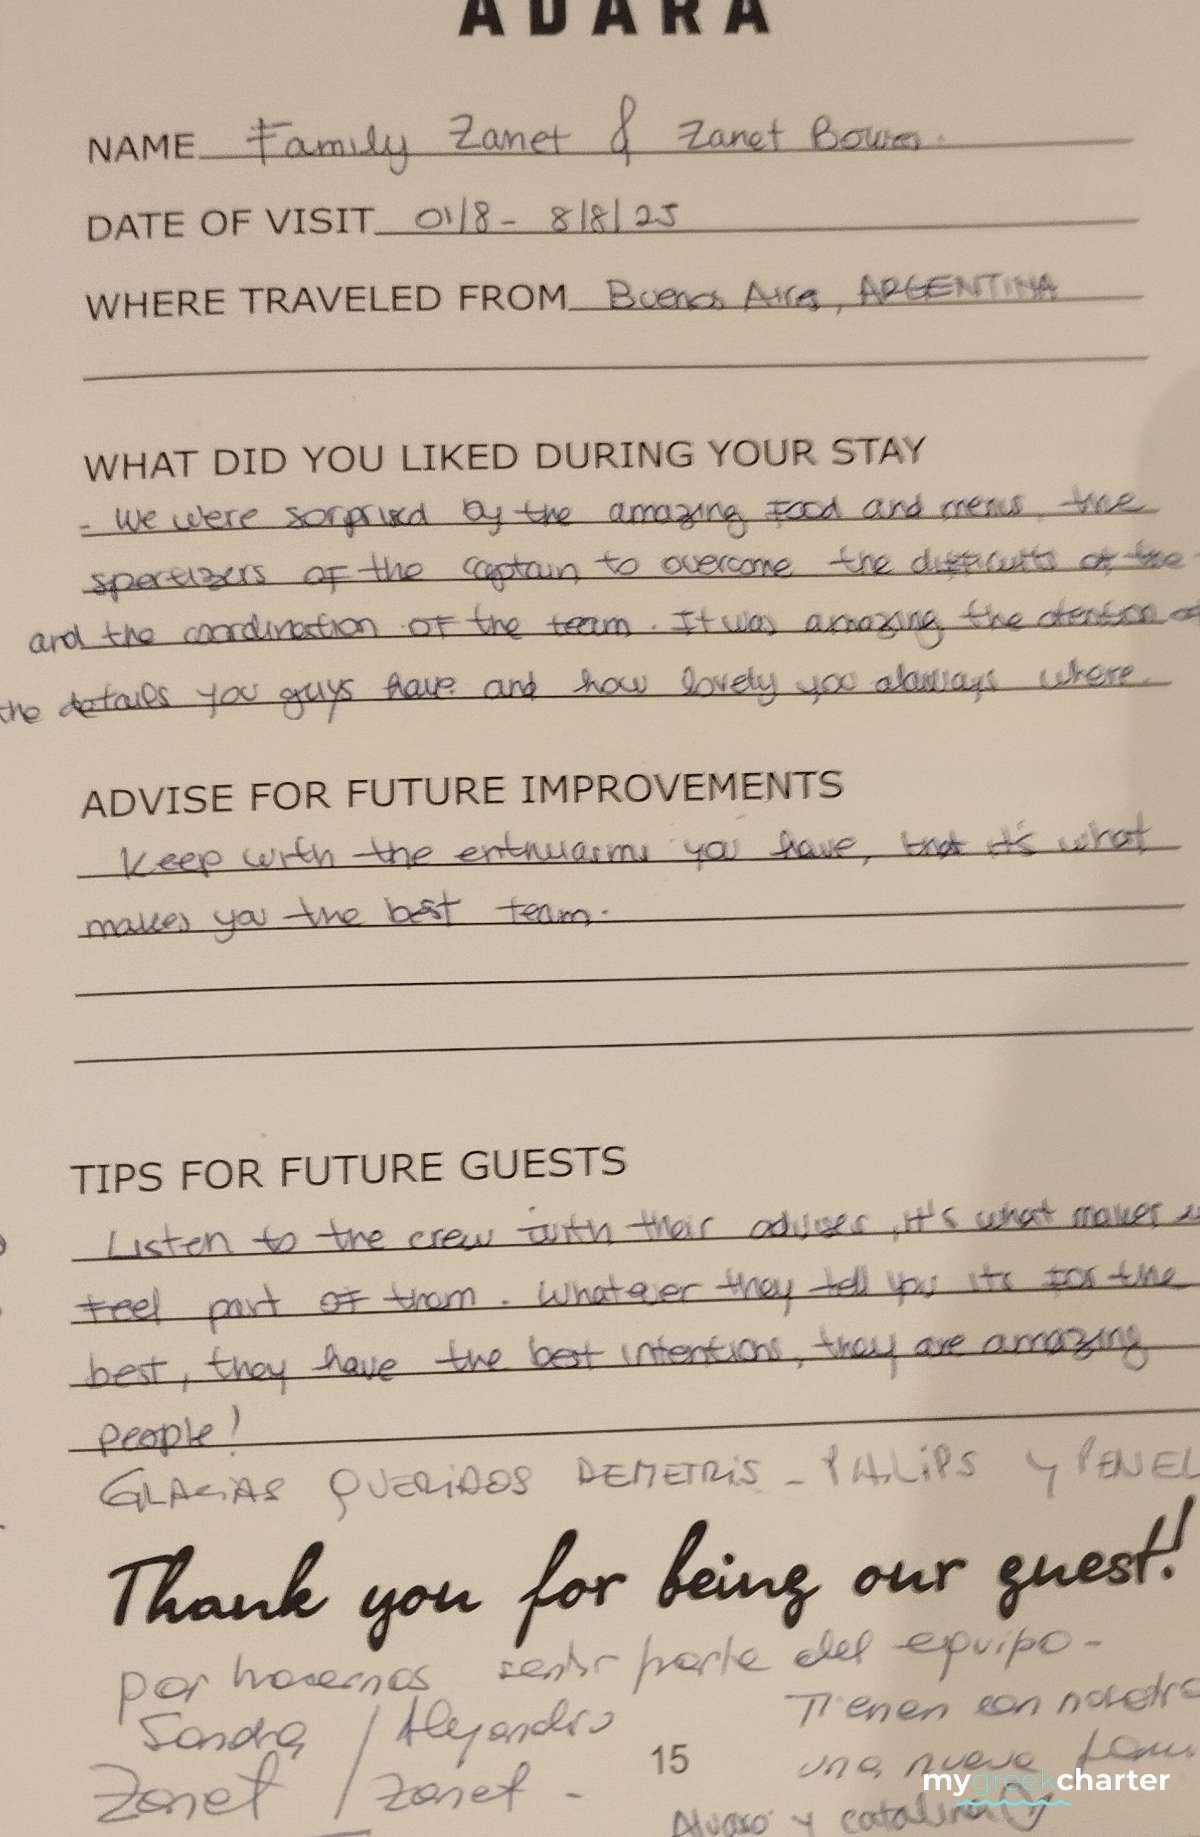 ADARA
NAME Family Zanet & Zanet Bower.
DATE OF VISIT 01/8 - 8/8/25
WHERE TRAVELED FROM Buenos Aires, ARGENTINA
WHAT DID YOU LIKED DURING YOUR STAY
- We were sorprised by the amazing food and menus, the
spertizers of the captain to overcome the difficults of the
and the coordination of the team. It was amazing the atention of
the details you guys have and how lovely you always where.
ADVISE FOR FUTURE IMPROVEMENTS
Keep with the you have, that it's what
makes you the best team.
TIPS FOR FUTURE GUESTS
Listen to the crew with their advises, it's what makes us
feel part of them. Whatever they tell you its for the
best, they have the best intentions, they are amazing
people!
GRACIAS QUERIDOS DEMETRIS - PHILIPS Y PENEL
Thank you for being our guest!
por hacernos sentir parte del equipo -
Sandra / Alejandro
Tienen con nosotros
Zanet / Zanet -
15
una nueva fami
Alvaro y catalina
mygreekcharter